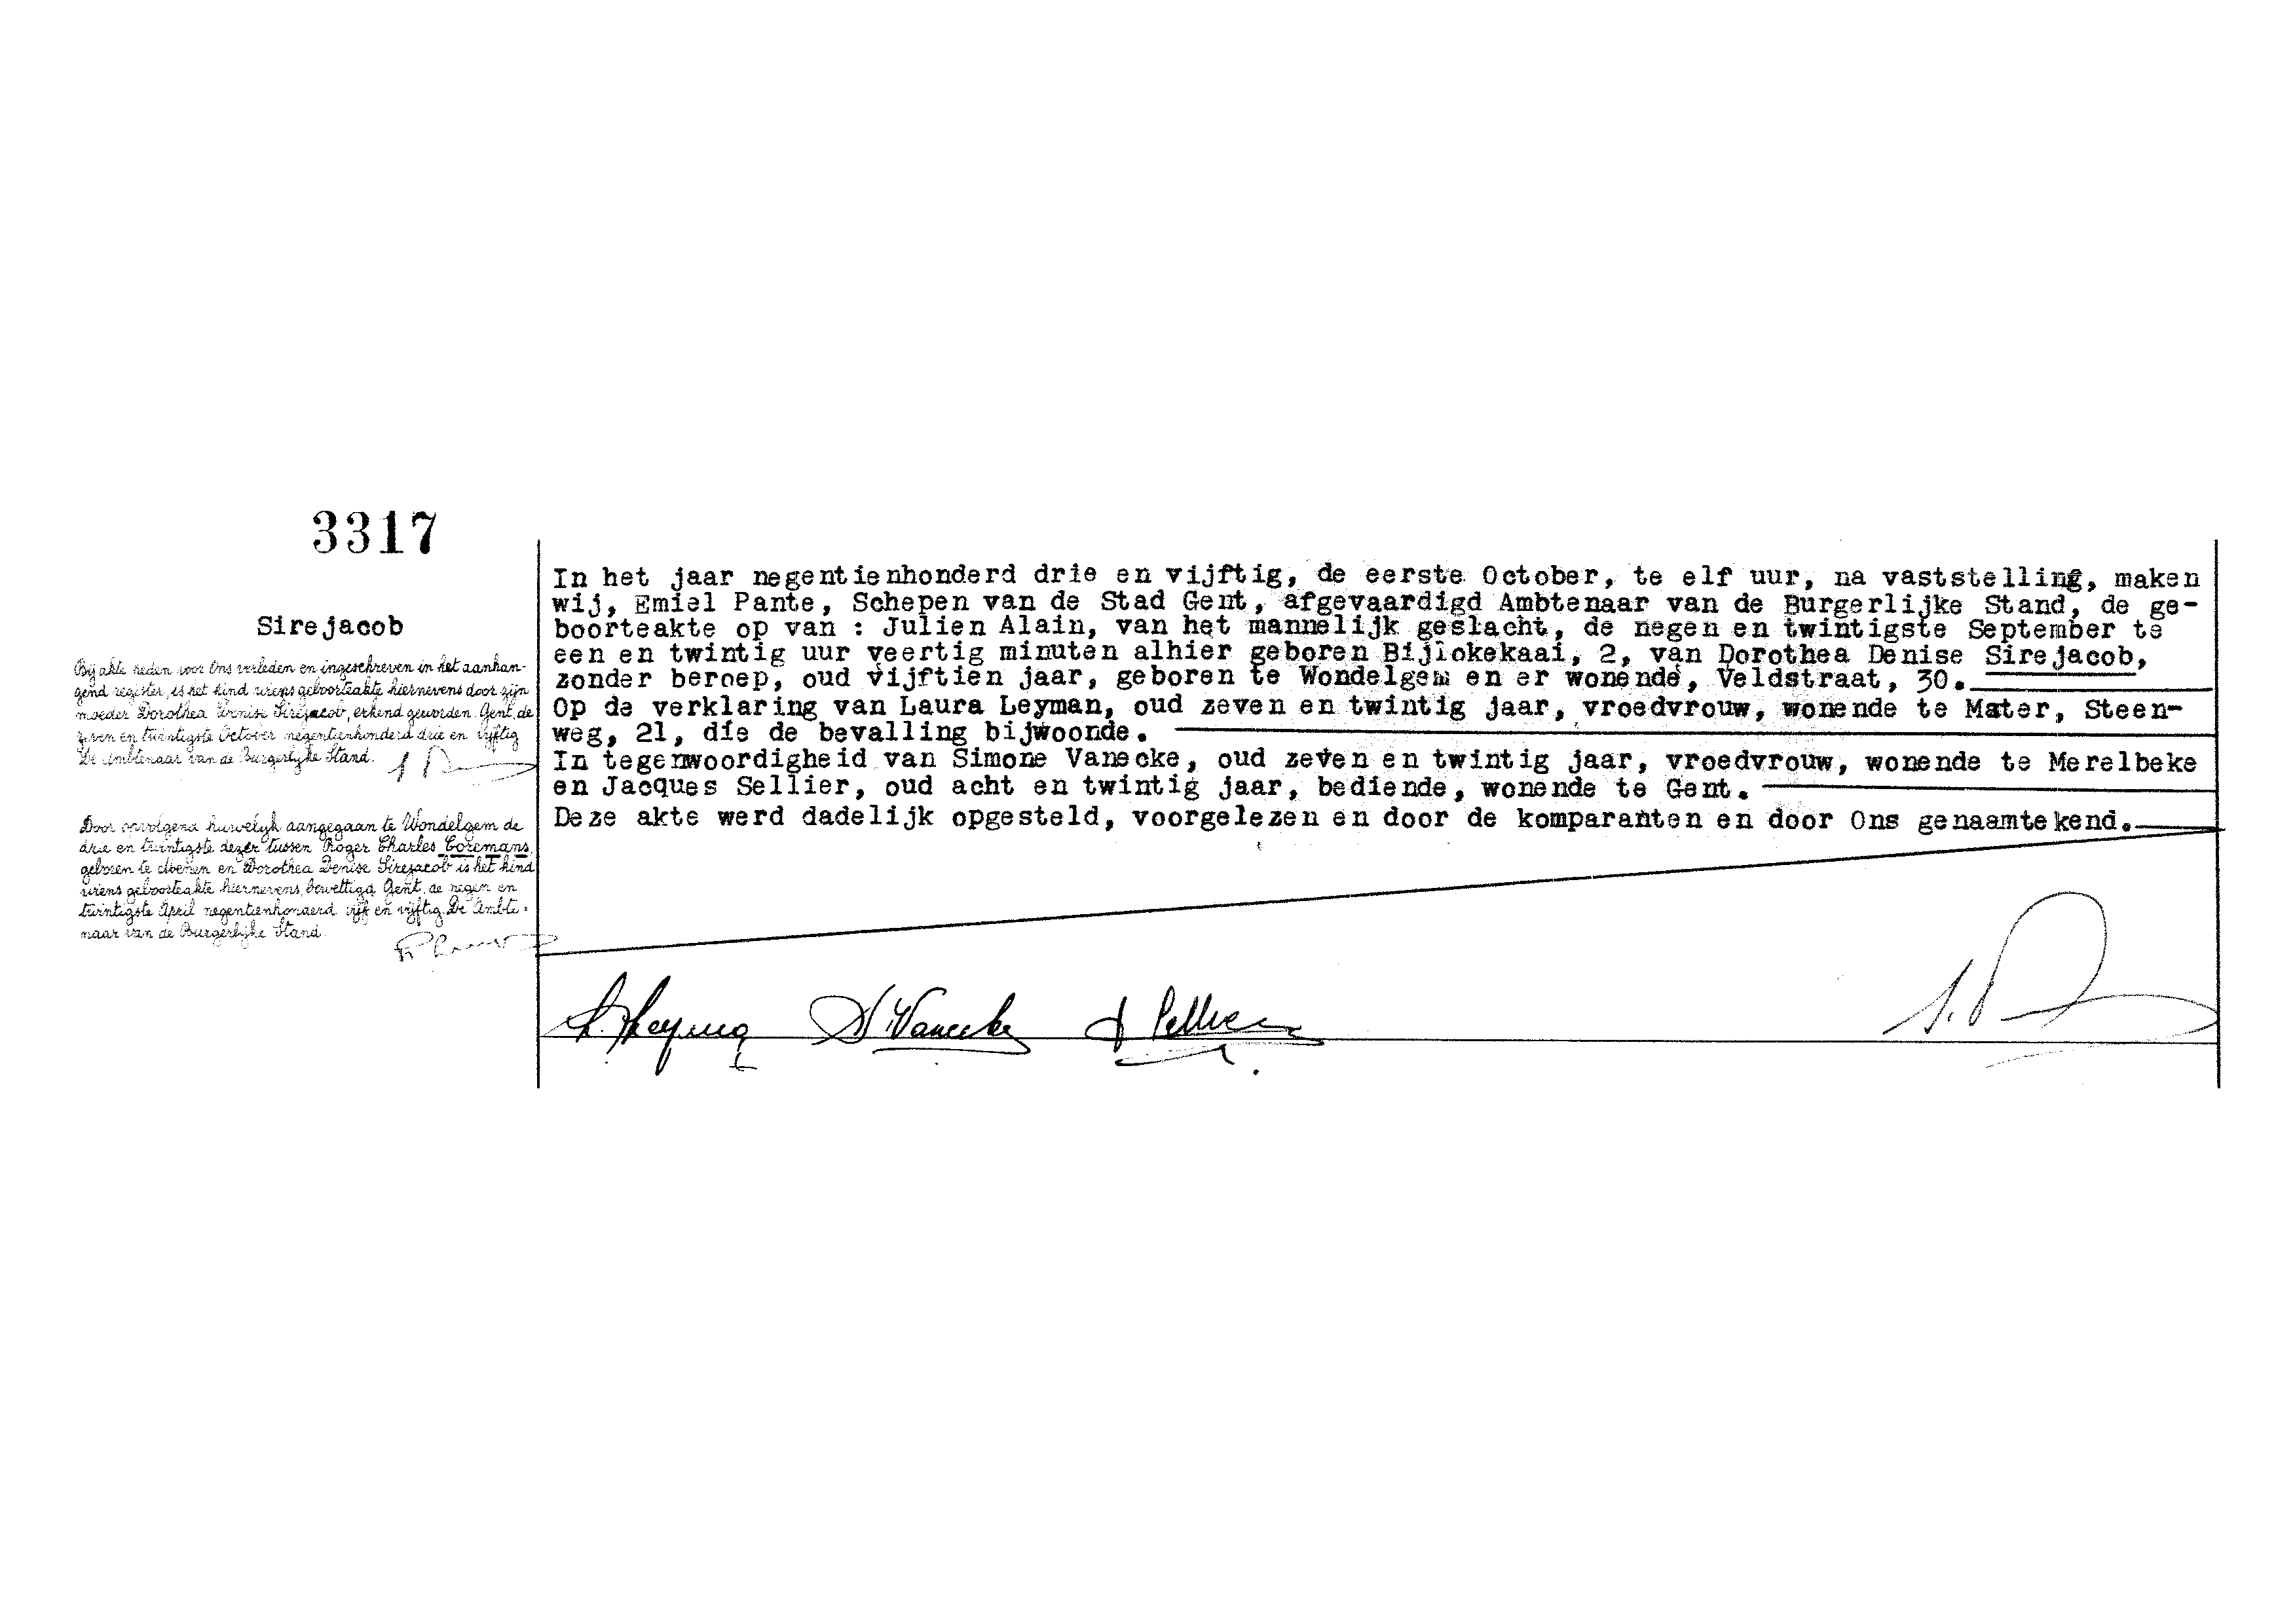 3317
Sirejacob
Bij akte heden voor Ons verleden en ingeschreven in het aanhan-
gend register, is het kind wiens geboorteakte hiernevens door zijn
moeder Dorothea Denise Sirejacob, erkend geworden. Gent, de
zeven en twintigste October negentienhonderd drie en vijftig
De Ambtenaar van de Burgerlijke Stand.
Door opvolgend huwelijk aangegaan te Wondelgem de
drie en twintigste dezer tussen Roger Charles Coremans,
geboren te en Dorothea Denise Sirejacob is het kind
wiens geboorteakte hiernevens, bewettigd. Gent, de negen en
twintigste April negentienhonderd vijf en vijftig. De Ambte-
naar van de Burgerlijke Stand
In het jaar negentienhonderd drie en vijftig, de eerste October, te elf uur, na vaststelling, maken
wij, Emiel Pante, Schepen van de Stad Gent, afgevaardigd Ambtenaar van de Burgerlijke Stand, de ge-
boorteakte op van : Julien Alain, van het mannelijk geslacht, de negen en twintigste September te
een en twintig uur veertig minuten alhier geboren Bijlokekaai, 2, van Dorothea Denise Sirejacob,
zonder beroep, oud vijftien jaar, geboren te Wondelgem en er wonende, Veldstraat, 30.
Op de verklaring van Laura Leyman, oud zeven en twintig jaar, vroedvrouw, wonende te Mater, Steen-
weg, 21, die de bevalling bijwoonde.
In tegenwoordigheid van Simone Vanecke, oud zeven en twintig jaar, vroedvrouw, wonende te Merelbeke
en Jacques Sellier, oud acht en twintig jaar, bediende, wonende te Gent.
Deze akte werd dadelijk opgesteld, voorgelezen en door de komparanten en door Ons genaamtekend.
S Vanecke J Sellier